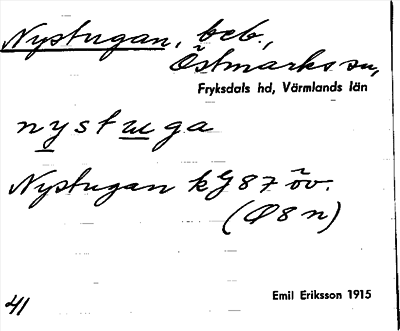 Nystugan, beb.,
Östmarks sn,
Fryksdals hd, Värmlands län
nystuga
Nystugan kG 87 öv.
(Ø8n)
Emil Eriksson 1915
41